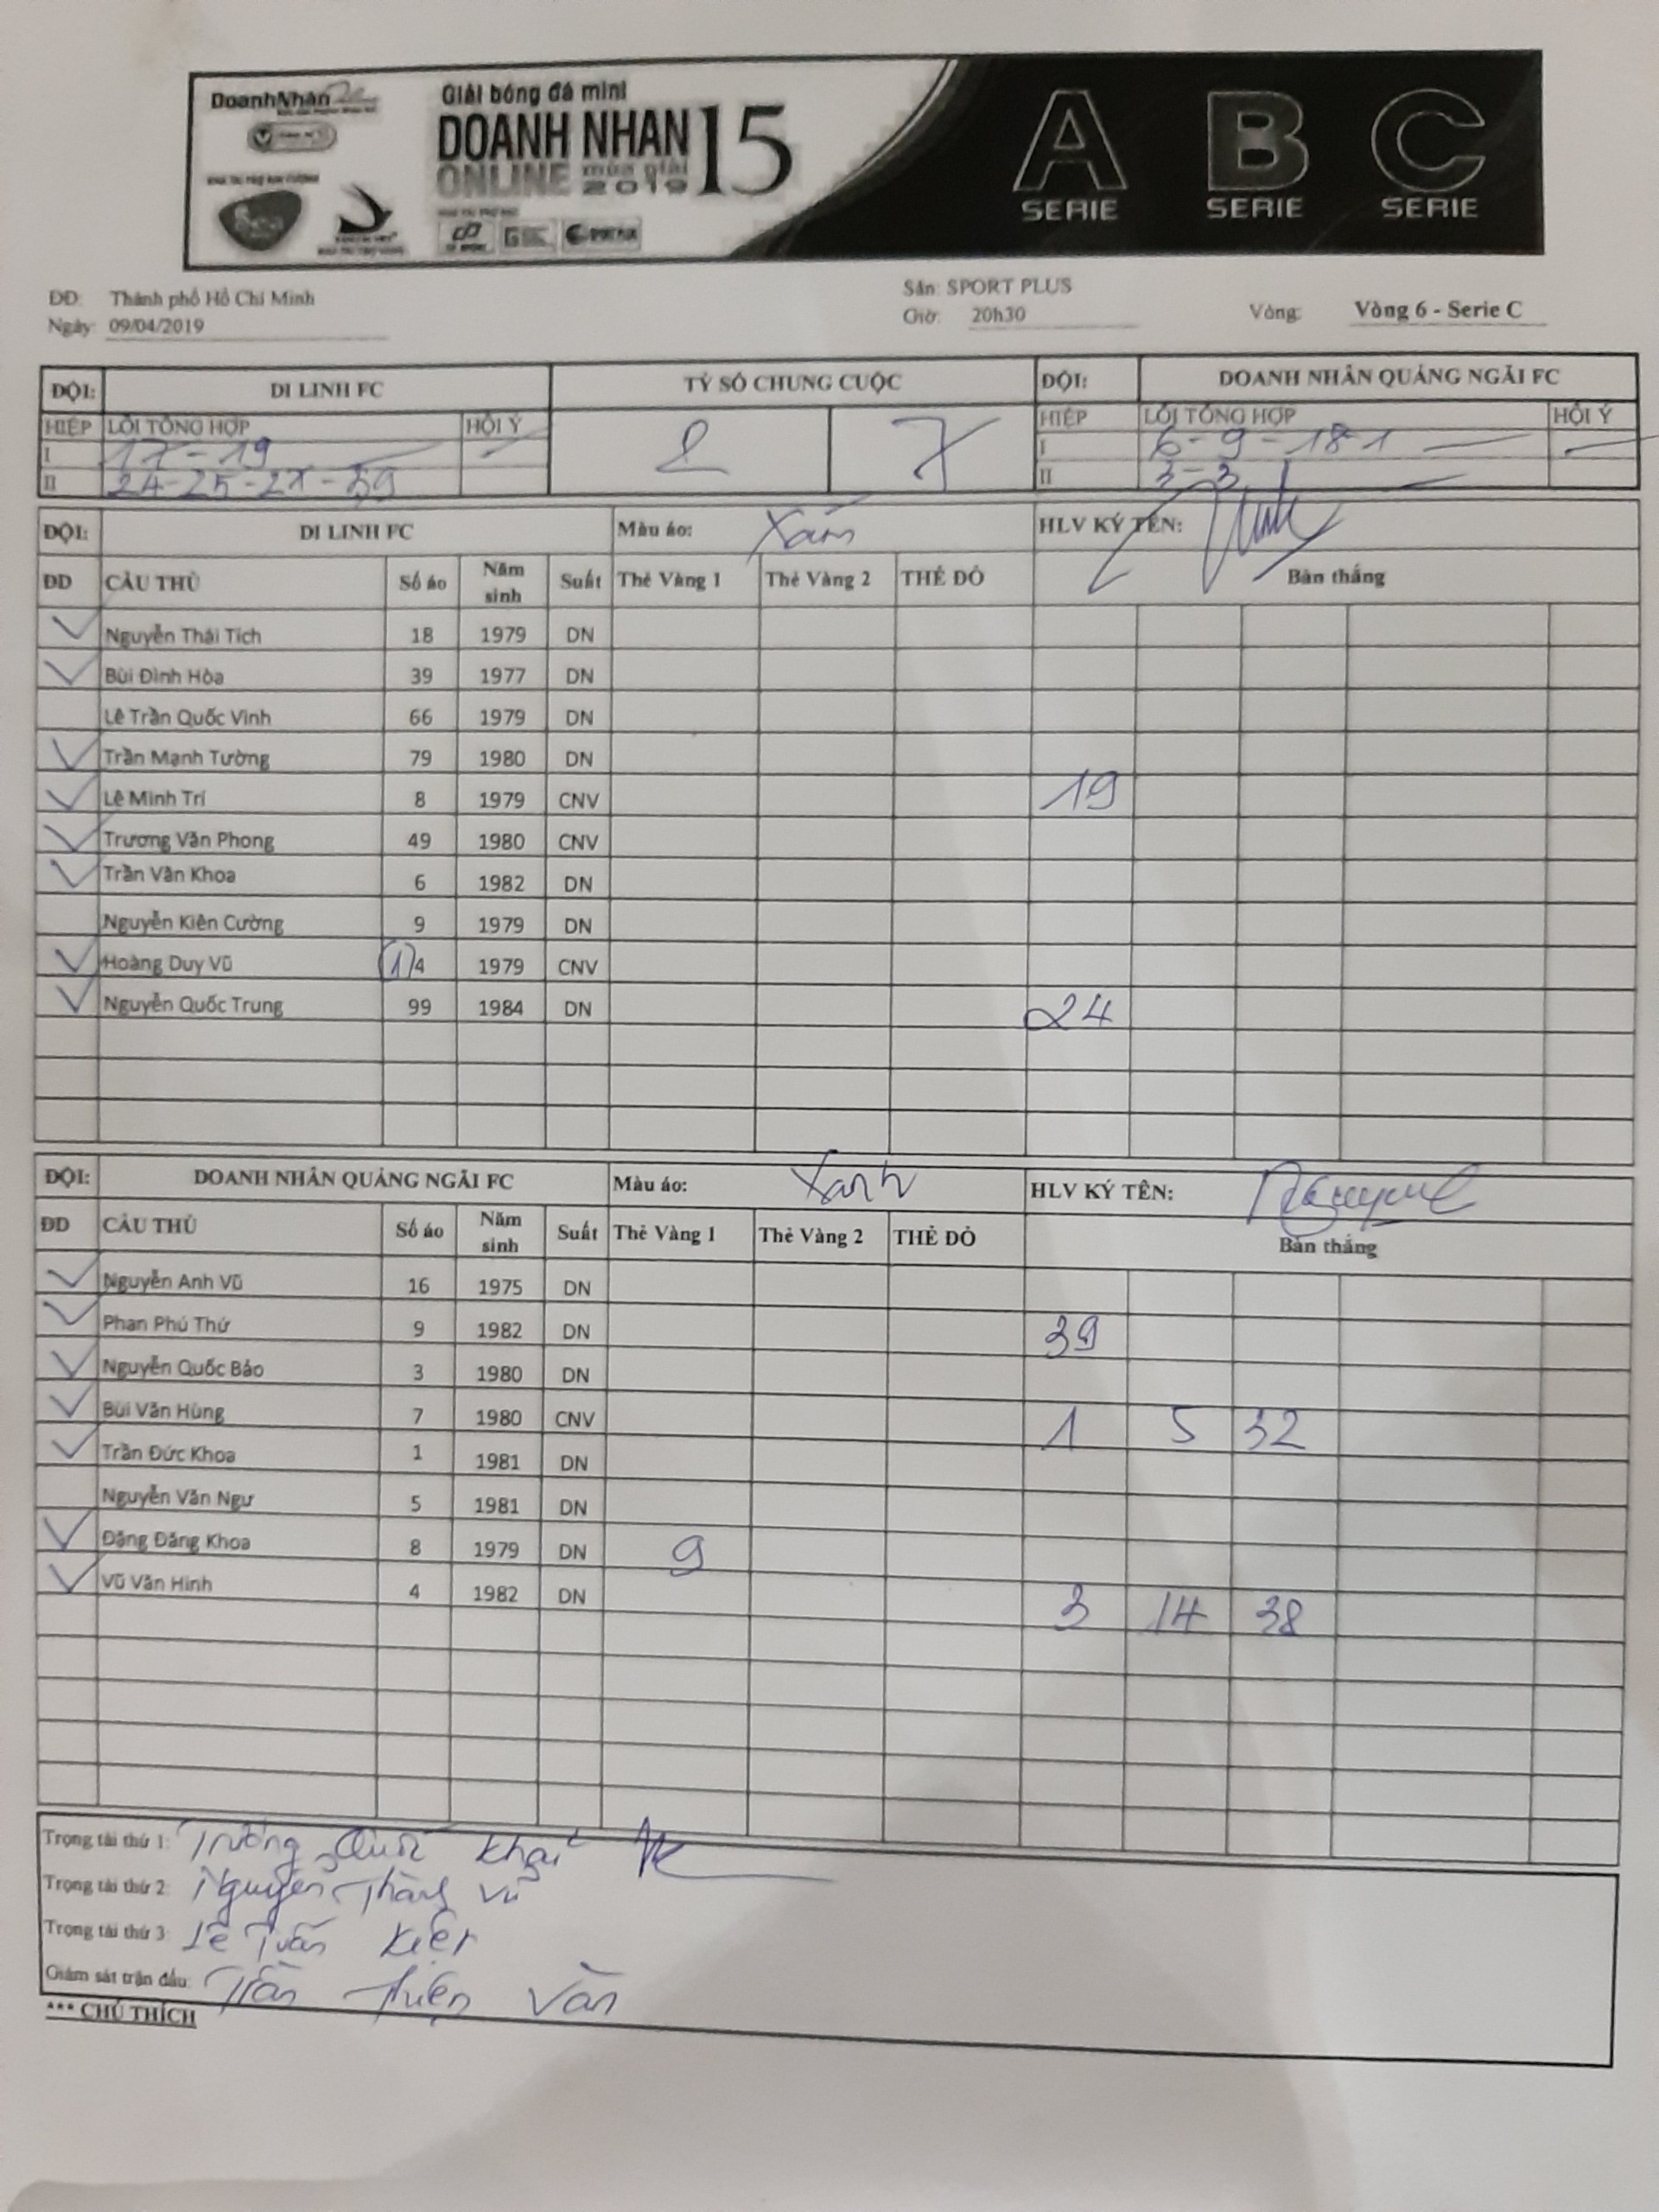 DoanhNhân
Giải bóng đá mini
DOANH NHAN 15
ONLINE mùa giải 2019
A B C
SERIE SERIE SERIE
ĐĐ: Thành phố Hồ Chí Minh Sân: SPORT PLUS
Ngày: 09/04/2019 Giờ: 20h30 Vòng: Vòng 6 - Serie C
ĐỘI: DI LINH FC TỶ SỐ CHUNG CUỘC ĐỘI: DOANH NHÂN QUẢNG NGÃI FC
HIỆP LỖI TỔNG HỢP HỘI Ý 2 7 HIỆP LỖI TỔNG HỢP HỘI Ý
I 17 - 19 I 6 - 9 - 18
II 24 - 25 - 27 - 39 II 3 - 3
ĐỘI: DI LINH FC Màu áo: Xám HLV KÝ TÊN:
ĐD CẦU THỦ Số áo Năm sinh Suất Thẻ Vàng 1 Thẻ Vàng 2 THẺ ĐỎ Bàn thắng
Nguyễn Thái Tích 18 1979 DN
Bùi Đình Hòa 39 1977 DN
Lê Trần Quốc Vinh 66 1979 DN
Trần Mạnh Tường 79 1980 DN
Lê Minh Trí 8 1979 CNV 19
Trương Văn Phong 49 1980 CNV
Trần Văn Khoa 6 1982 DN
Nguyễn Kiên Cường 9 1979 DN
Hoàng Duy Vũ 14 1979 CNV
Nguyễn Quốc Trung 99 1984 DN 24
ĐỘI: DOANH NHÂN QUẢNG NGÃI FC Màu áo: Xanh HLV KÝ TÊN:
ĐD CẦU THỦ Số áo Năm sinh Suất Thẻ Vàng 1 Thẻ Vàng 2 THẺ ĐỎ Bàn thắng
Nguyễn Anh Vũ 16 1975 DN
Phan Phú Thứ 9 1982 DN 39
Nguyễn Quốc Bảo 3 1980 DN
Bùi Văn Hùng 7 1980 CNV 1 5 32
Trần Đức Khoa 1 1981 DN
Nguyễn Văn Ngư 5 1981 DN
Đặng Đăng Khoa 8 1979 DN 9
Vũ Văn Hinh 4 1982 DN 3 14 38
Trọng tài thứ 1: Trương Quốc Khải
Trọng tài thứ 2: Nguyễn Thành Vũ
Trọng tài thứ 3: Lê Tuấn Kiệt
Giám sát trận đấu: Trần Thiện Văn
*** CHÚ THÍCH